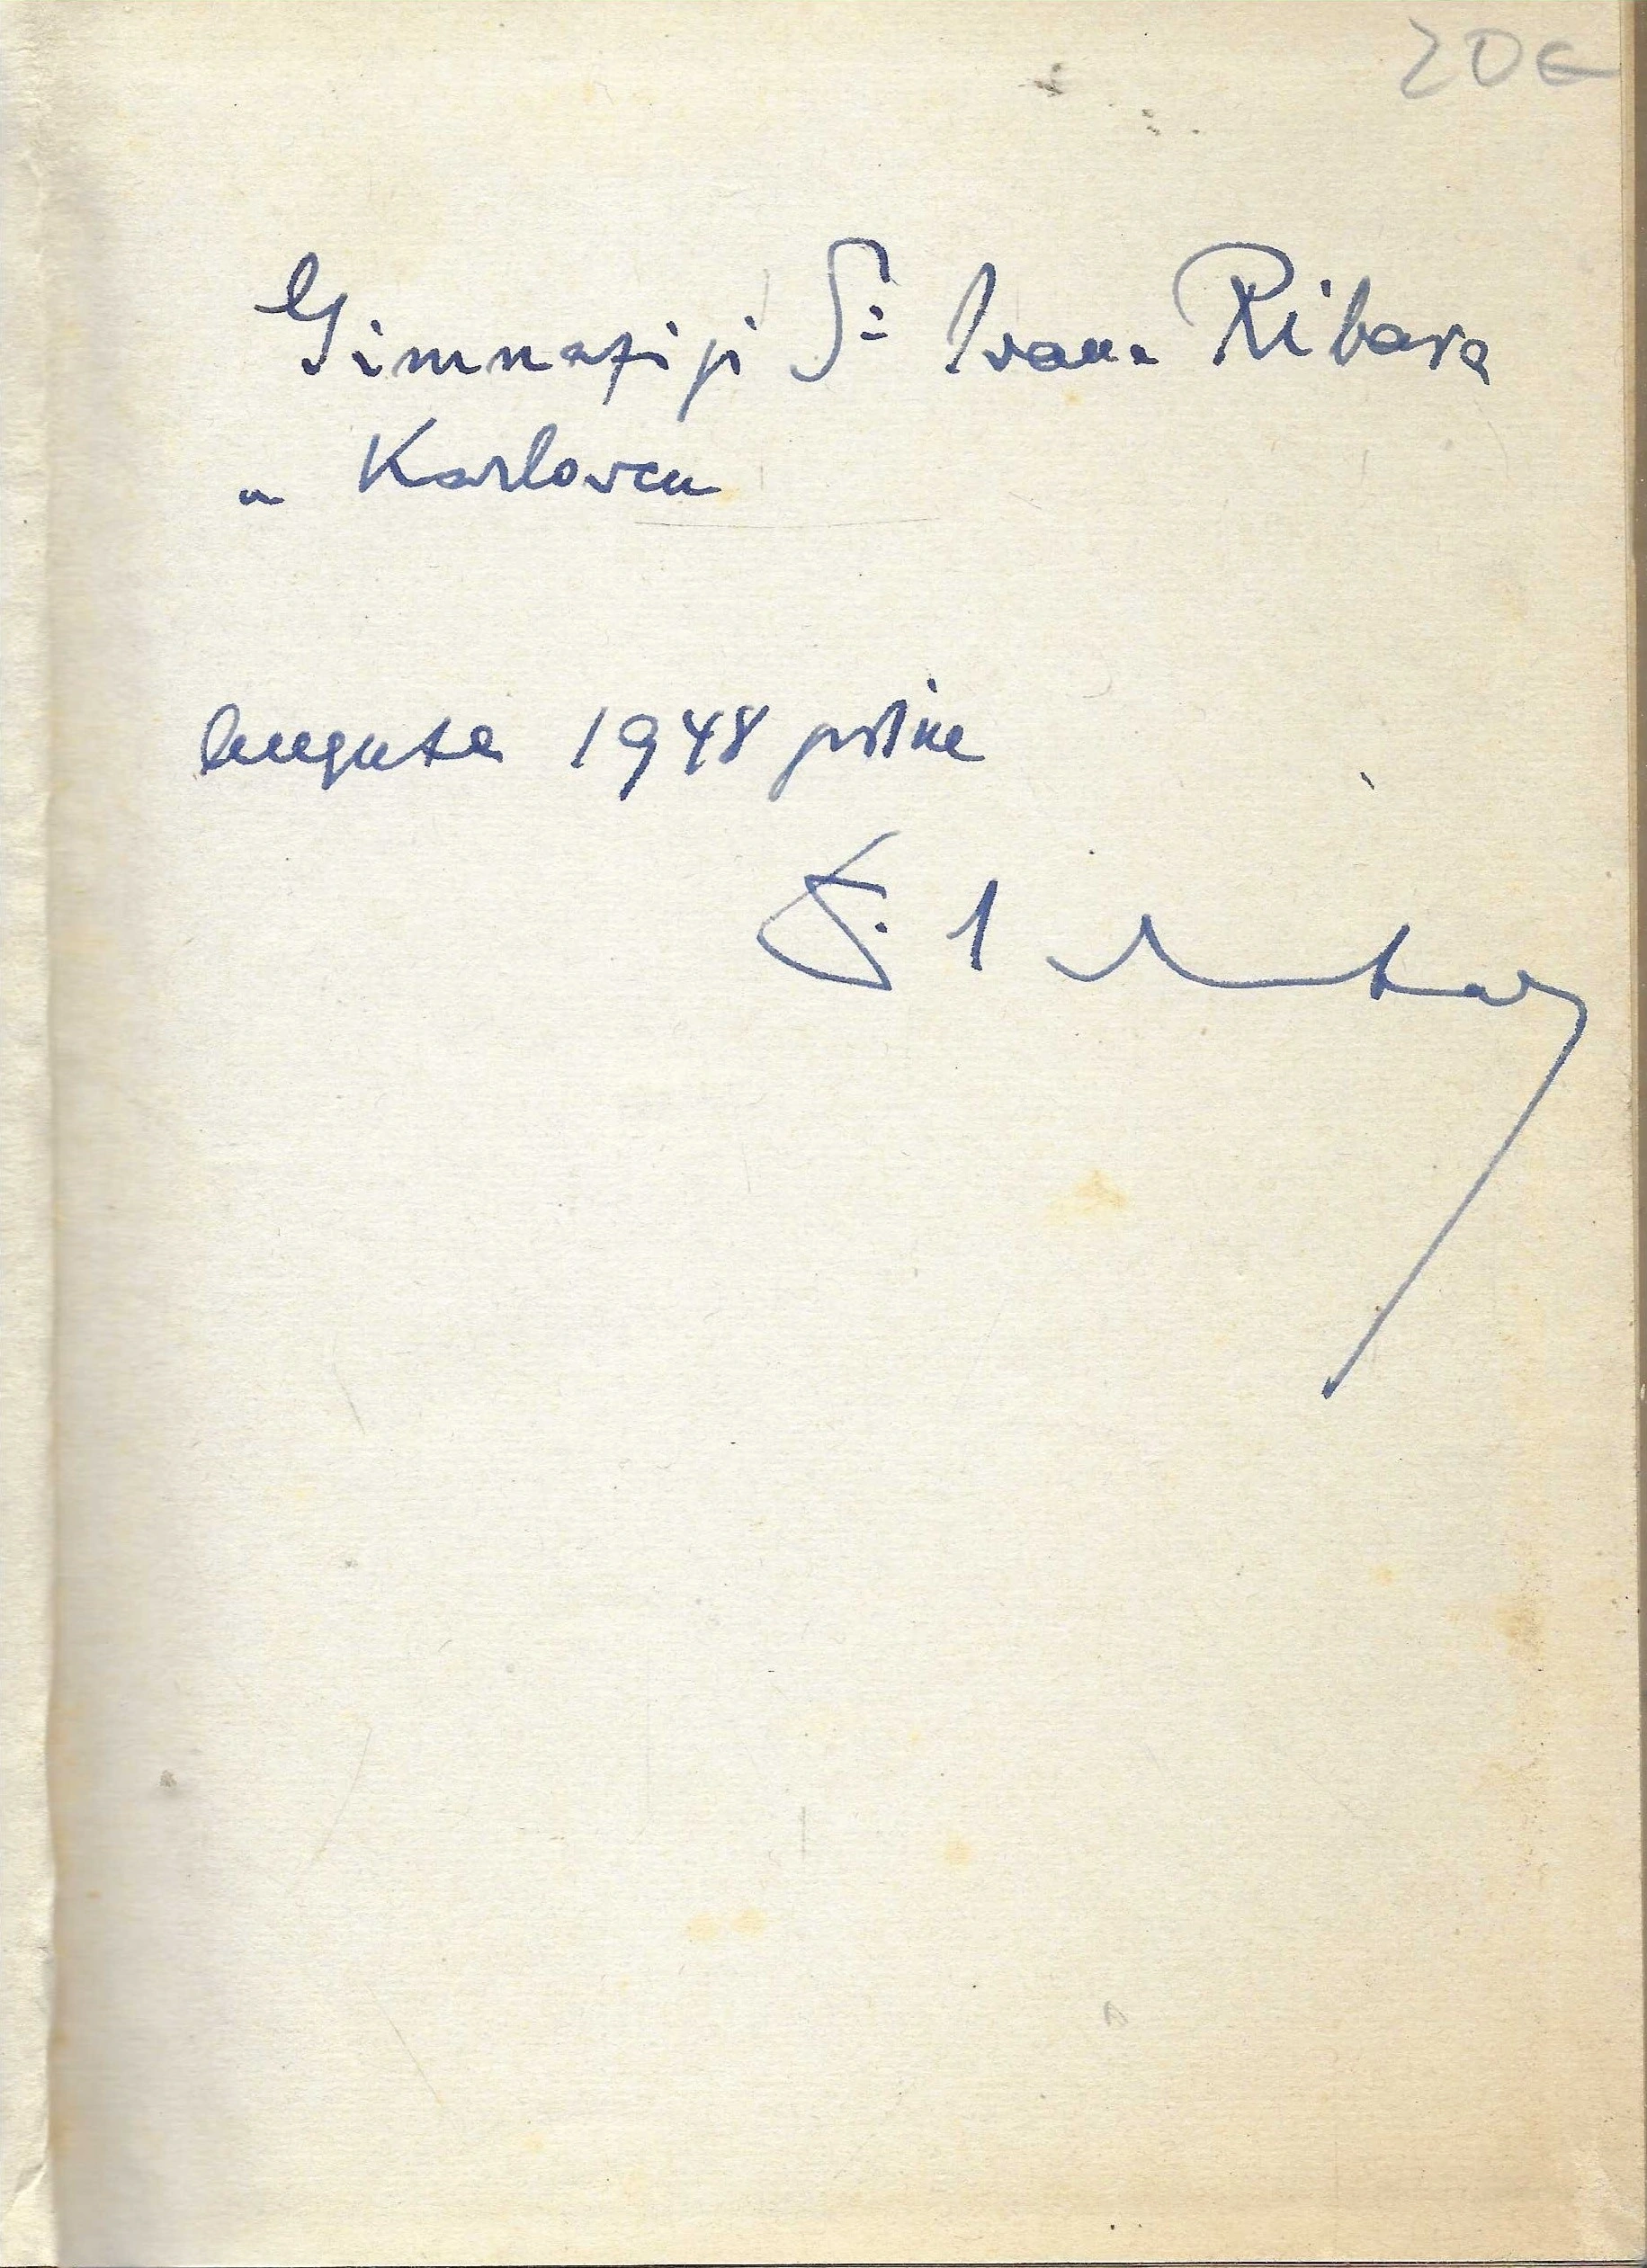 20€
Gimnaziji Dr Ivana Ribara
u Karlovcu
augusta 1948 godine